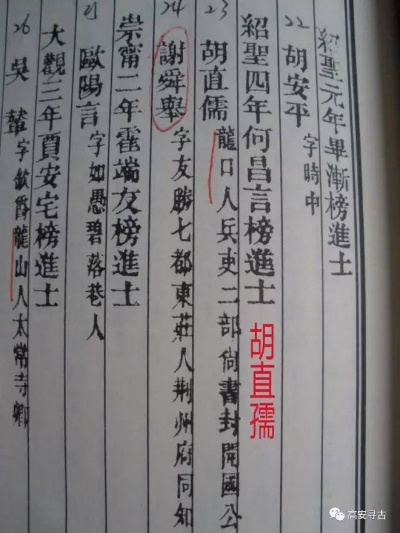 紹聖元年畢漸榜進士
22 胡安平 字時中
紹聖四年何昌言榜進士
23 胡直儒 龍口人兵吏二部尙書封開國公
24 謝舜舉 字友勝七都東莊人荆州府同知
崇甯二年霍端友榜進士
歐陽言 字如愚碧落巷人
大觀三年賈安宅榜進士
26 吳輦 字敘爵龍山人太常寺卿
胡直孺
高安寻古